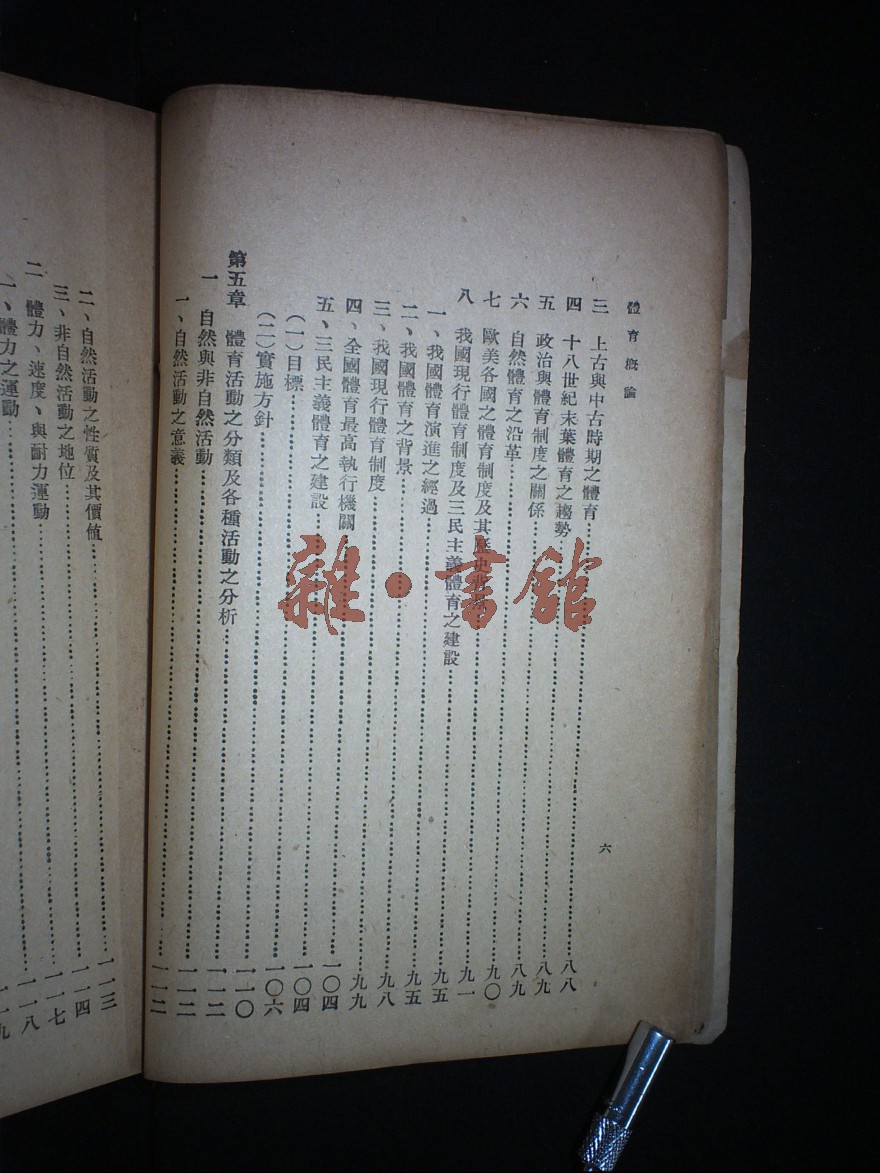 體育概論
六
三　上古與中古時期之體育……八八
四　十八世紀末葉體育之趨勢……八九
五　政治與體育制度之關係……八九
六　自然體育之沿革……九〇
七　歐美各國之體育制度及其歷史背景……九一
八　我國現行體育制度及三民主義體育之建設……九五
一、我國體育演進之經過……九五
二、我國體育之背景……九八
三、我國現行體育制度……九九
四、全國體育最高執行機關……一〇四
五、三民主義體育之建設……一〇四
（一）目標……一〇六
（二）實施方針……一一〇
第五章　體育活動之分類及各種活動之分析……一一二
一　自然與非自然活動……一一二
一、自然活動之意義……一一二
二、自然活動之性質及其價值……一一三
三、非自然活動之地位……一一四
二　體力、速度、與耐力運動……一一七
一、體力之運動……一一八
雜·書館